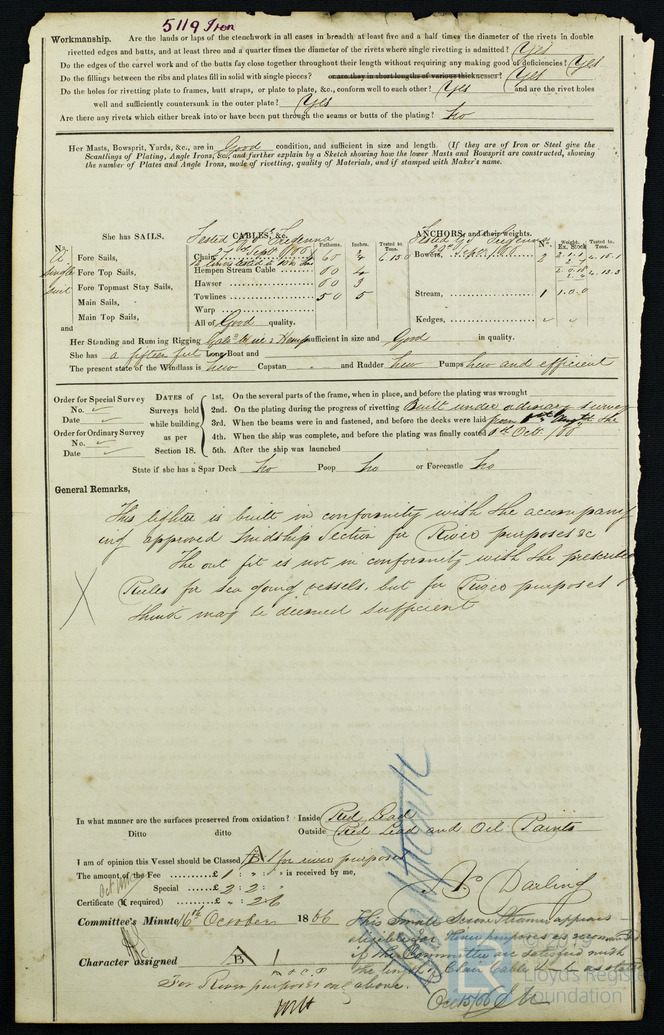 5119 Iron
Workmanship. Are the lands or laps of the clenchwork in all cases in breadth at least five and a half times the diameter of the rivets in double
rivetted edges and butts, and at least three and a quarter times the diameter of the rivets where single rivetting is admitted? Yes
Do the edges of the carvel work and of the butts fay close together throughout their length without requiring any making good of deficiencies? Yes
Do the fillings between the ribs and plates fill in solid with single pieces? or are they in short lengths of various thicknesses? Yes
Do the holes for rivetting plate to frames, butt straps, or plate to plate, &c., conform well to each other? Yes and are the rivet holes
well and sufficiently countersunk in the outer plate? Yes
Are there any rivets which either break into or have been put through the seams or butts of the plating? No
Her Masts, Bowsprit, Yards, &c., are in Good condition, and sufficient in size and length. (If they are of Iron or Steel give the
Scantlings of Plating, Angle Irons, &c., and further explain by a Sketch showing how the lower Masts and Bowsprit are constructed, showing
the number of Plates and Angle Irons, mode of rivetting, quality of Materials, and if stamped with Maker's name.
She has SAILS.
No.
A single suit
Fore Sails,
Fore Top Sails,
Fore Topmast Stay Sails,
Main Sails,
Main Top Sails,
and
CABLES, &c. Fathoms. Inches. Tested to Tons.
Chain 60
Hempen Stream Cable 60 4
Hawser 60 3
Towlines 50 5
Warp
All of Good quality.
ANCHORS, and their weights. Nos. Weight. Ex. Stock Tested to Tons.
Bowers, 2
Stream, 1 1.0.0
Kedges,
Her Standing and Running Rigging Hemp sufficient in size and Good in quality.
She has a fifteen feet Long Boat and
The present state of the Windlass is New Capstan and Rudder New Pumps New and efficient
Order for Special Survey
No.
Date
Order for Ordinary Survey
No.
Date
DATES of
Surveys held
while building
as per
Section 18.
1st. On the several parts of the frame, when in place, and before the plating was wrought
2nd. On the plating during the progress of rivetting Built under ordinary survey
3rd. When the beams were in and fastened, and before the decks were laid from
4th. When the ship was complete, and before the plating was finally coated Oct.
5th. After the ship was launched
State if she has a Spar Deck No Poop No or Forecastle No
General Remarks,
This lighter is built in conformity with the accompany
ing approved Midship Section for River purposes &c
The out fit is not in conformity with the prescribed
Rules for sea going vessels, but for River purposes I
think may be deemed sufficient
In what manner are the surfaces preserved from oxidation? Inside Red Lead
Ditto ditto Outside Red Lead and Oil Paints
I am of opinion this Vessel should be Classed B 1 for river purposes
The amount of the Fee £ 1 : " : " is received by me,
Special £ 2 : 2 : "
Certificate (if required) : 2 6
A. Darling
Committee's Minute 16th October 1866
This Small Screw Steamer appears
eligible for River purposes as recommended
if the Committee are satisfied with
the length of Chain Cable as stated
Oct 15/66
Character assigned B 1
For River purposes only above.
© 2019
Lloyd's Register
Foundation